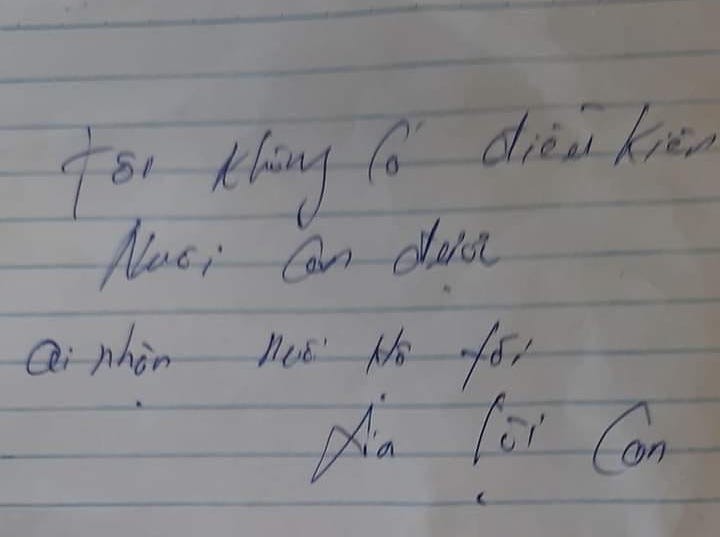 Tôi không có điều kiện
Nuôi con được
ai nhận nuôi hộ tôi
Xin lỗi con